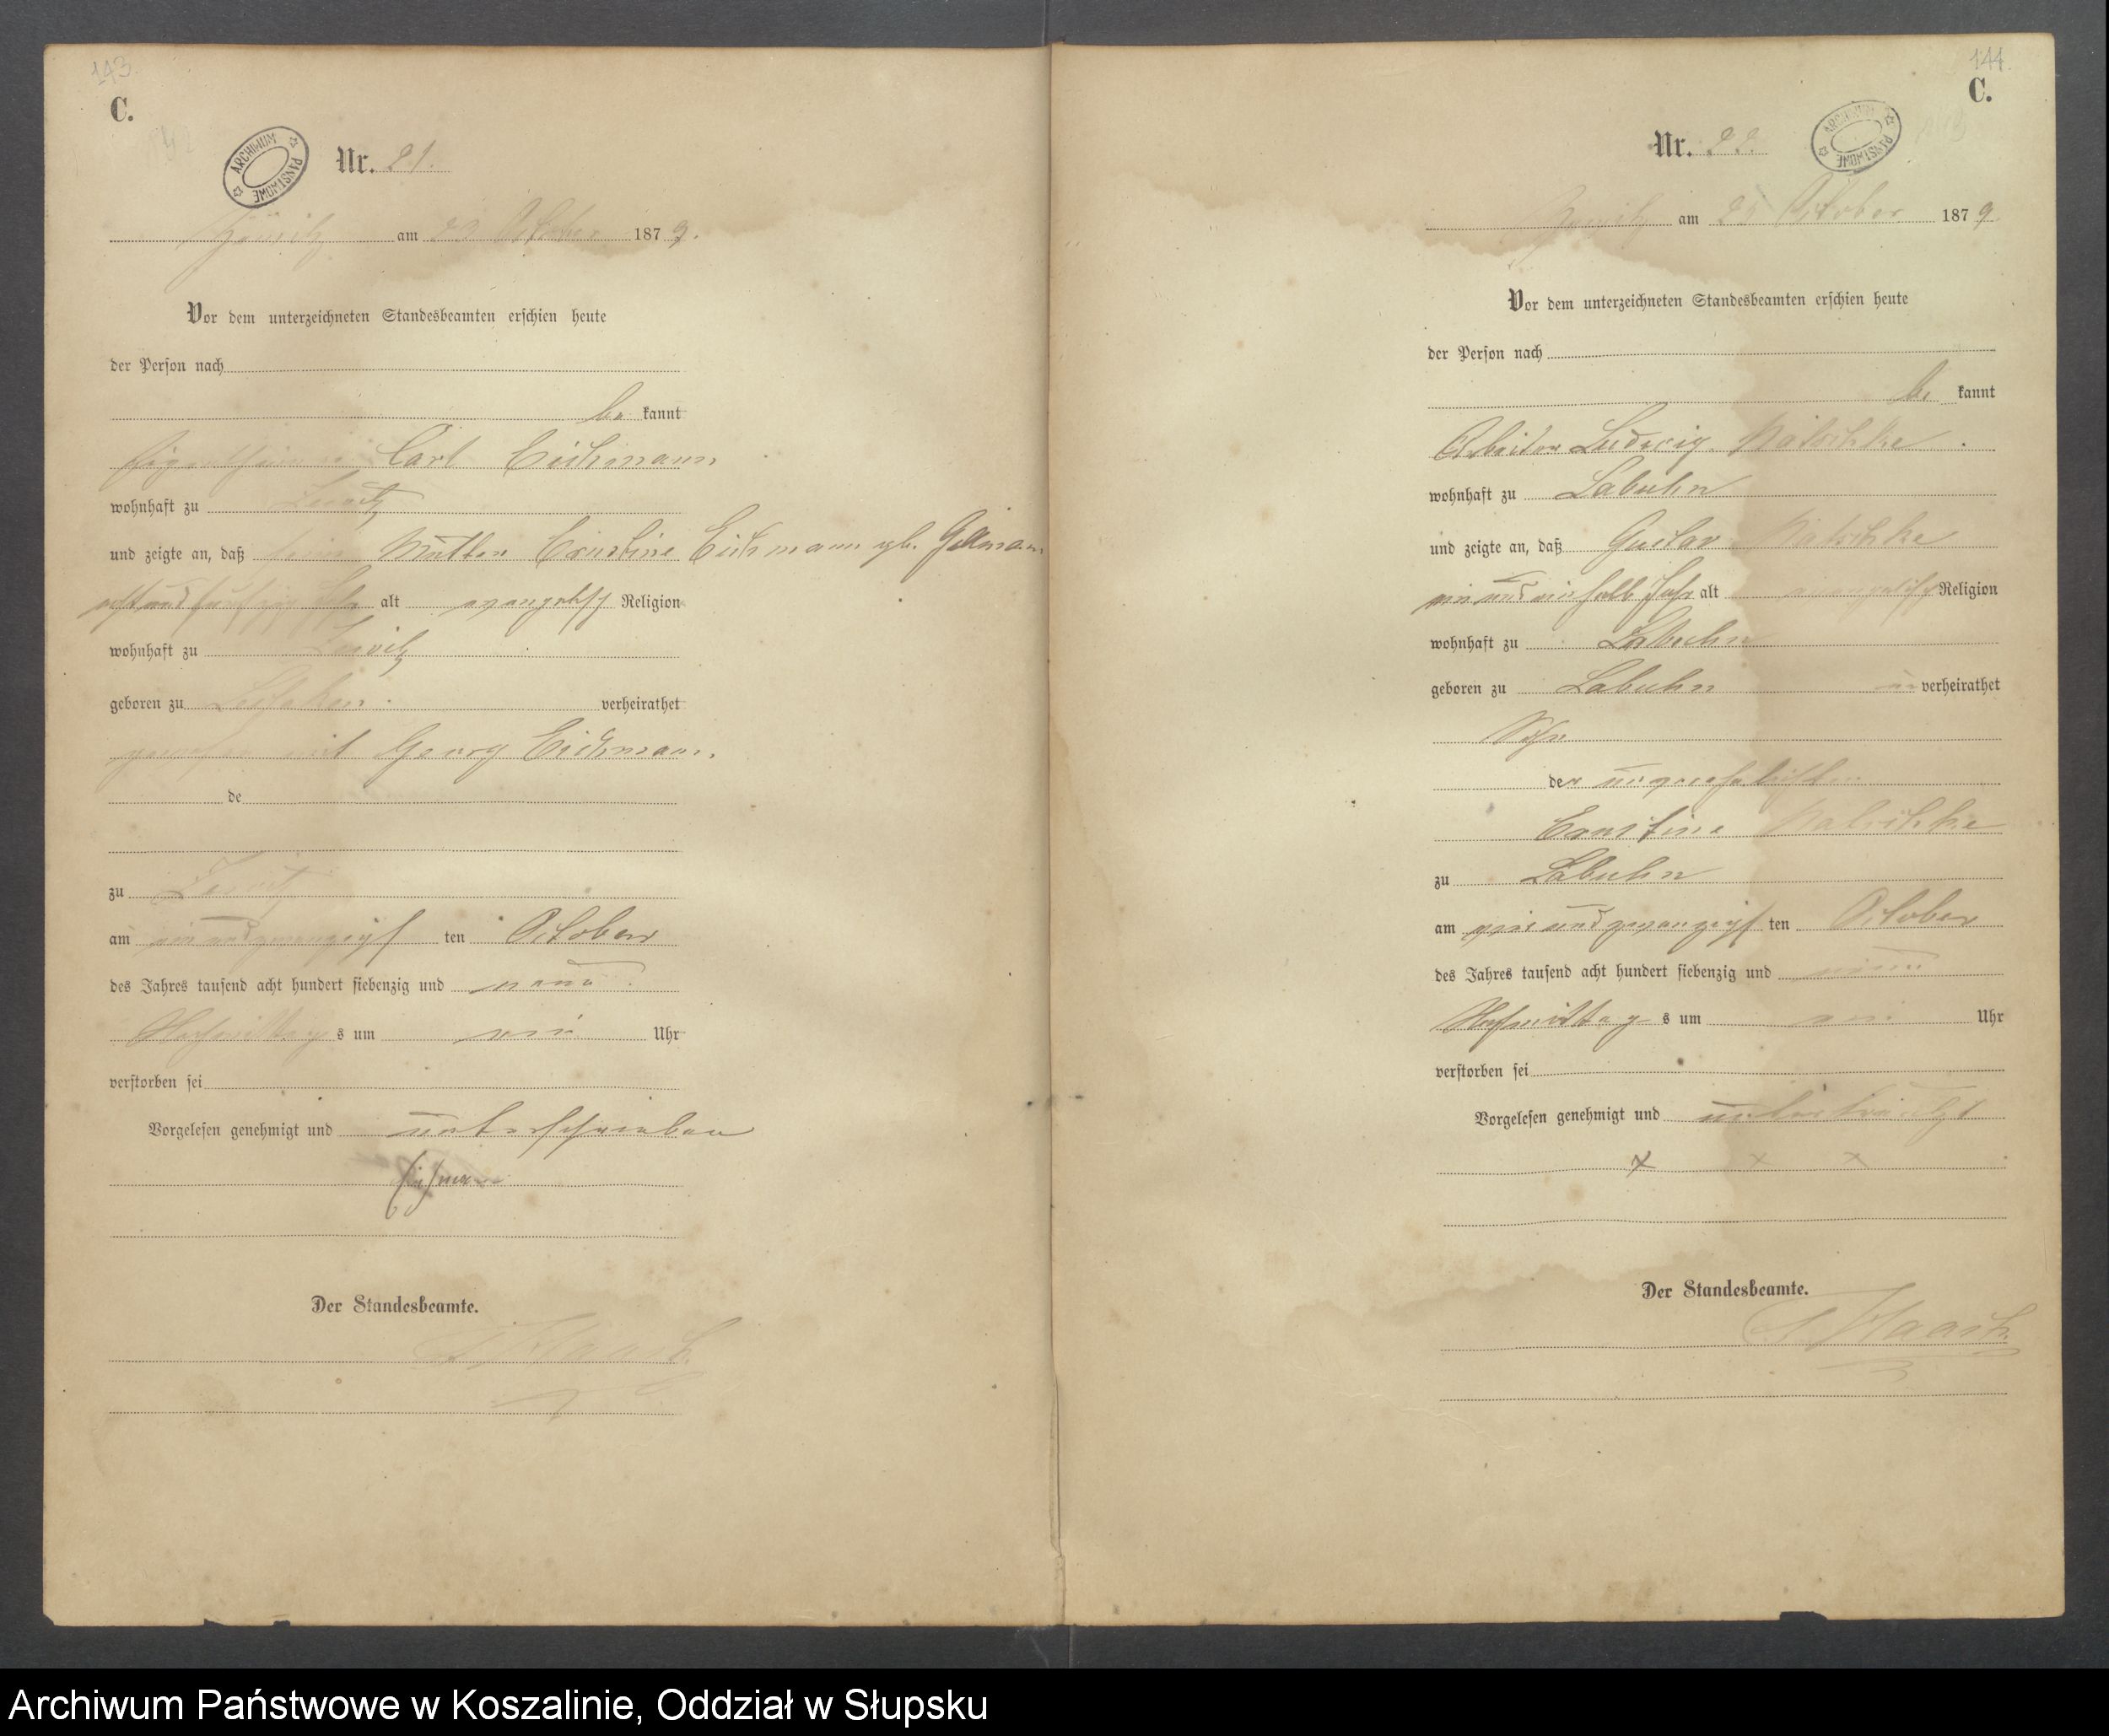 143.
C.
ARCHIWUM PAŃSTWOWE
Nr. 21.
am 23 October 1879.
Vor dem unterzeichneten Standesbeamten erschien heute
der Person nach
be kannt
Carl Eichmann
wohnhaft zu
und zeigte an, daß seine Mutter Ernstine Eichmann gb.
alt evangelisch Religion
wohnhaft zu
geboren zu verheirathet
gewesen mit Georg Eichmann.
de
zu
am ein und zwanzigst ten October
des Jahres tausend acht hundert siebenzig und neun.
Nachmittag s um Uhr
verstorben sei
Vorgelesen genehmigt und unterschrieben
Eichmann
Der Standesbeamte.
144.
C.
ARCHIWUM PAŃSTWOWE
Nr. 22.
am October 1879
Vor dem unterzeichneten Standesbeamten erschien heute
der Person nach
be kannt
Arbeiter Ludwig Natschke.
wohnhaft zu Labuhn
und zeigte an, daß Gustav Natschke
ein und ein halb Jahr alt evangelisch Religion
wohnhaft zu Labuhn
geboren zu Labuhn un verheirathet
Sohn
der unverehelichten
Ernstine Natschke
zu Labuhn
am ein und zwanzigst ten October
des Jahres tausend acht hundert siebenzig und neun
Nachmittag s um Uhr
verstorben sei
Vorgelesen genehmigt und unterkreuzt
x x x
Der Standesbeamte.
Archiwum Państwowe w Koszalinie, Oddział w Słupsku